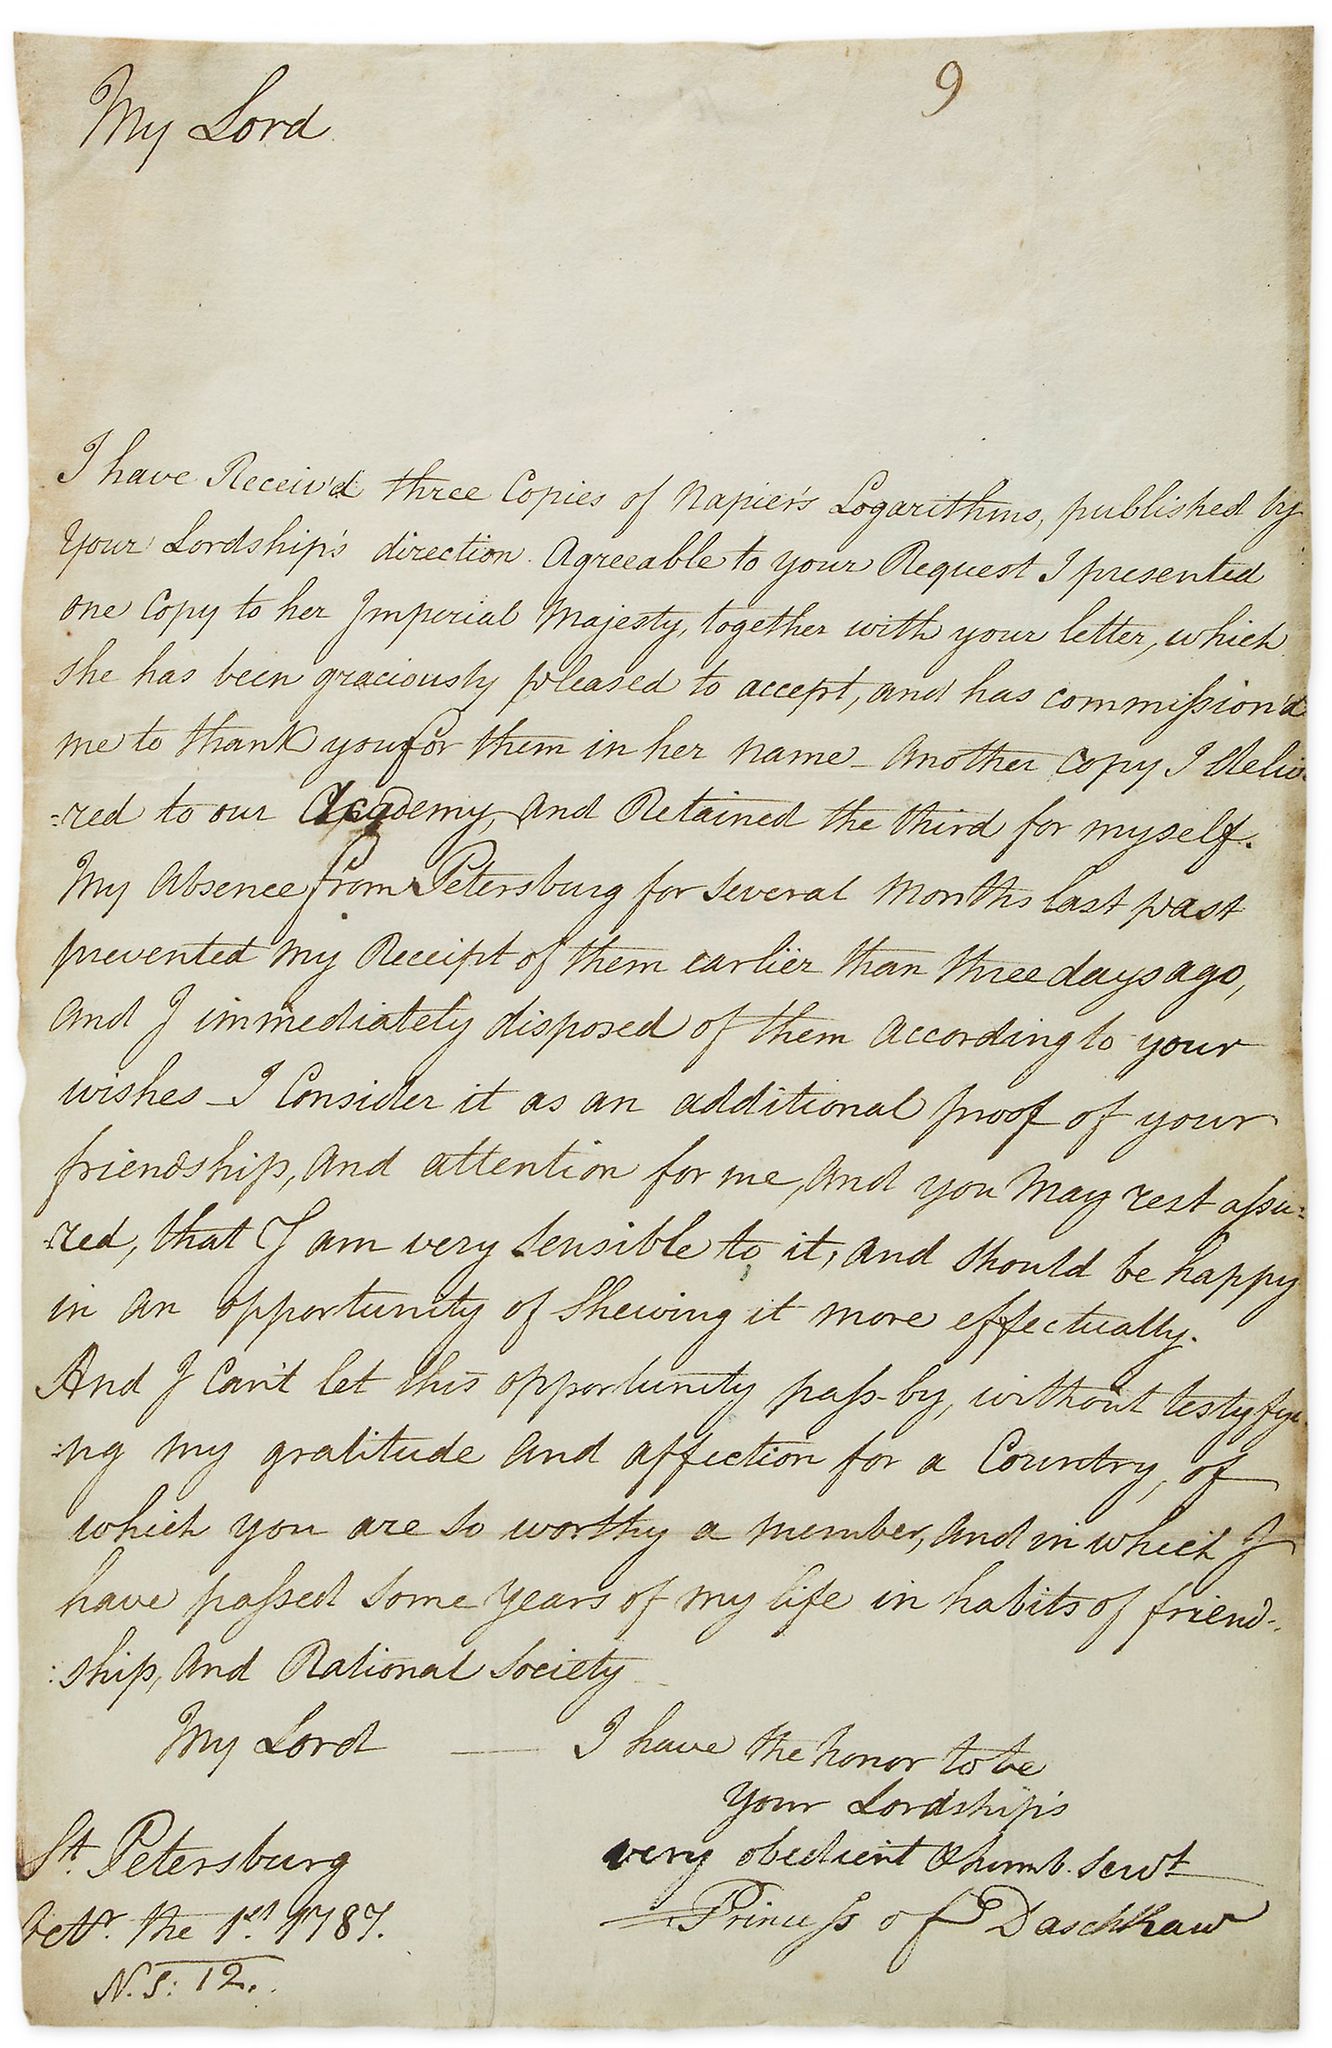 9
My Lord
I have Receiv'd three Copies of Napier's Logarithms, published by
Your Lordship's direction. Agreeable to your Request I presented
one Copy to her Imperial Majesty, together with your letter, which
she has been graciously pleased to accept, and has commission'd
me to thank you for them in her name _ Another copy I delive
=red to our Academy, and Retained the third for myself.
My Absence from Petersburg for several Months last past
prevented my Receipt of them earlier than three days ago,
and I immediately disposed of them according to your
wishes _ I Consider it as an additional proof of your
friendship, and attention for me, and you may rest assu=
=red, that I am very sensible to it, and should be happy
in an opportunity of shewing it more effectually.
And I Can't let this opportunity pass-by, without testyfyi
=ng my gratitude and affection for a Country, of
which you are so worthy a member, and in which I
have passed some years of my life in habits of friend-
:ship, and Rational Society
My Lord — I have the honor to be
Your Lordship's
very obedient & humb. servt
Princess of Daschkaw
St. Petersburg
Octr. the 1st. 1787.
N.S: 12.